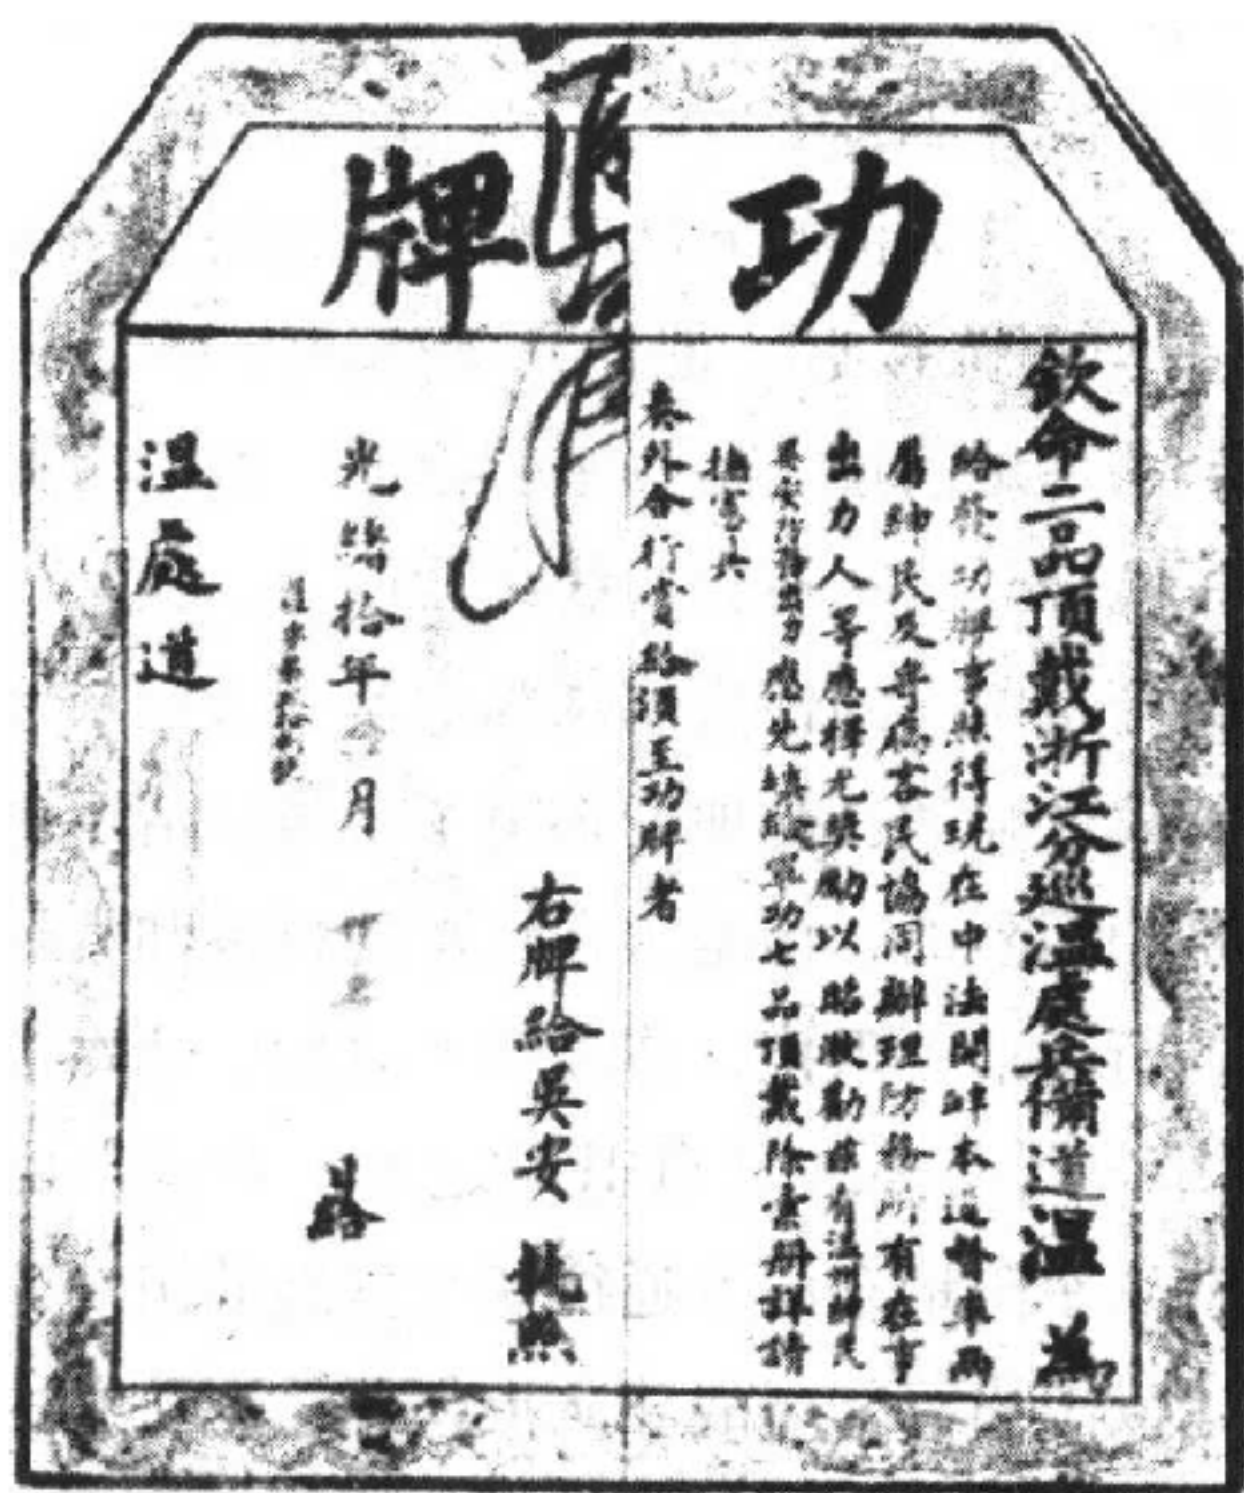 功牌
欽命二品頂戴浙江分巡溫處兵備道溫 為
給發功牌事照得現在中法開衅本道督率兩
屬紳民及寄寓客民協同辦理防務所有在事
出力人等應擇尤獎勵以昭激勸茲有溫州紳民
吳安 出力應先填給軍功七品頂戴除彙冊詳請
撫憲共
奏外合行賞給須至功牌者
右牌給吳安 執照
光緒拾年 月
溫處道